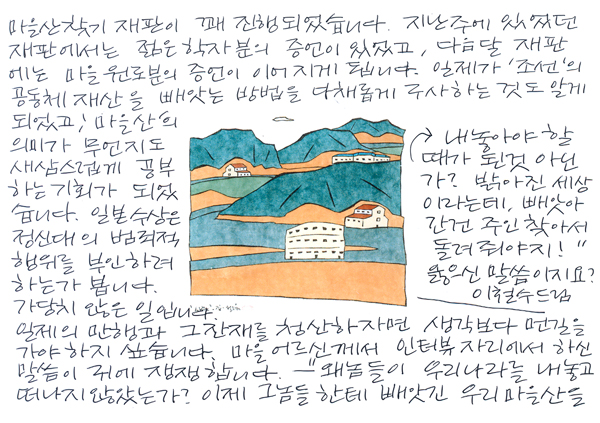 마을산찾기 재판이 꽤 진행되었습니다. 지난주에 있었던
재판에서는 젊은 학자분의 증언이 있었고, 다음달 재판
에는 마을원로분의 증언이 이어지게 됩니다. 일제가 '조선'의
공동체 재산을 빼앗는 방법을 다채롭게 구사하는 것도 알게
되었고, '마을산'의
의미가 무언지도
새삼스럽게 공부
하는 기회가 되었
습니다. 일본수상은
정신대의 범죄적
행위를 부인하려
하는가 봅니다.
가당치 않은 일입니다.
일제의 만행과 그 잔재를 청산하자면 생각보다 먼길을
가야 하지 싶습니다. 마을어르신께서 인터뷰 자리에서 하신
말씀이 귀에 쟁쟁합니다. "왜놈들이 우리나라를 내놓고
떠나지 않았는가? 이제 그놈들한테 빼앗긴 우리마을산을
내놓아야 할
때가 된것 아닌
가? 밝아진 세상
이라는데, 빼앗아
간건 주인 찾아서
돌려줘야지!"
옳으신 말씀이지요?
이철수드림